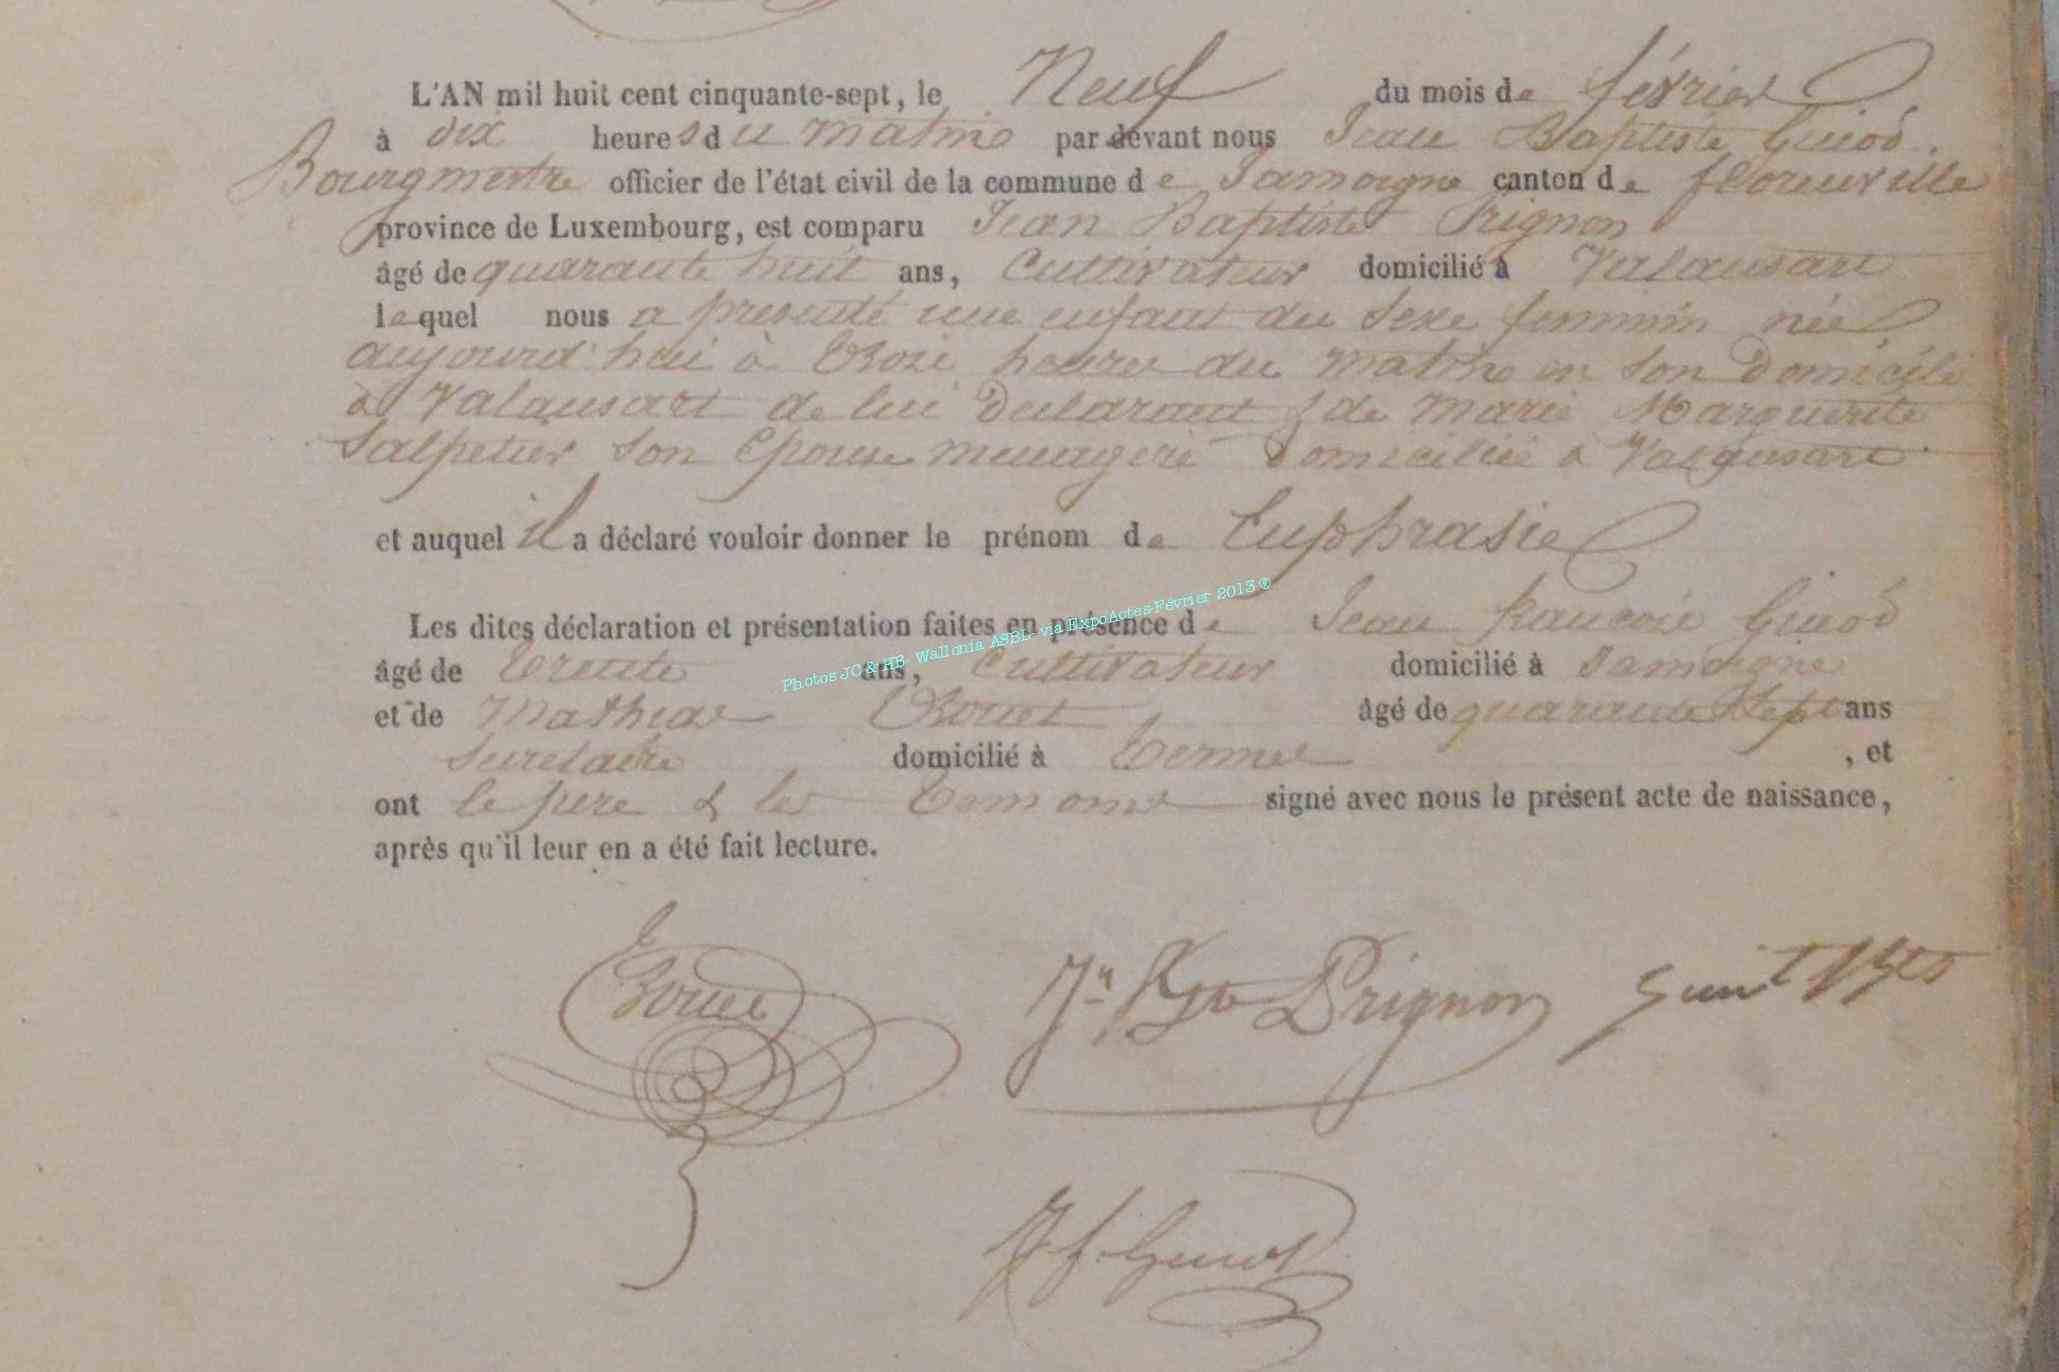 L'AN mil huit cent cinquante-sept, le Neuf du mois de février
à dix heures du matin par devant nous Jean Baptiste Guiot
Bourgmestre officier de l'état civil de la commune de Jamoigne canton de florenville
province de Luxembourg, est comparu Jean Baptiste Prignon
âgé de quarante huit ans, Cultivateur domicilié à Valansart
lequel nous a presenté une enfant du sexe feminin née
aujourd'hui à trois heures du matin en son Domicile
à Valansart de lui Declarant & de Marie Marguerite
Salpetier son Epouse menagere Domiciliée à Valansart
et auquel il a déclaré vouloir donner le prénom de Euphrasie
Les dites déclaration et présentation faites en présence de Jean francois Guiot
âgé de trente ans, Cultivateur domicilié à Jamoigne
et de Mathias âgé de quarante Sept ans
Secretaire domicilié à termes , et
ont le pere & les temoins signé avec nous le présent acte de naissance,
après qu'il leur en a été fait lecture.
Photos JC & HB- Wallonia ASBL- via ExpoActes-Février 2013 ®
Jn Bte Prignon
J f Guiot